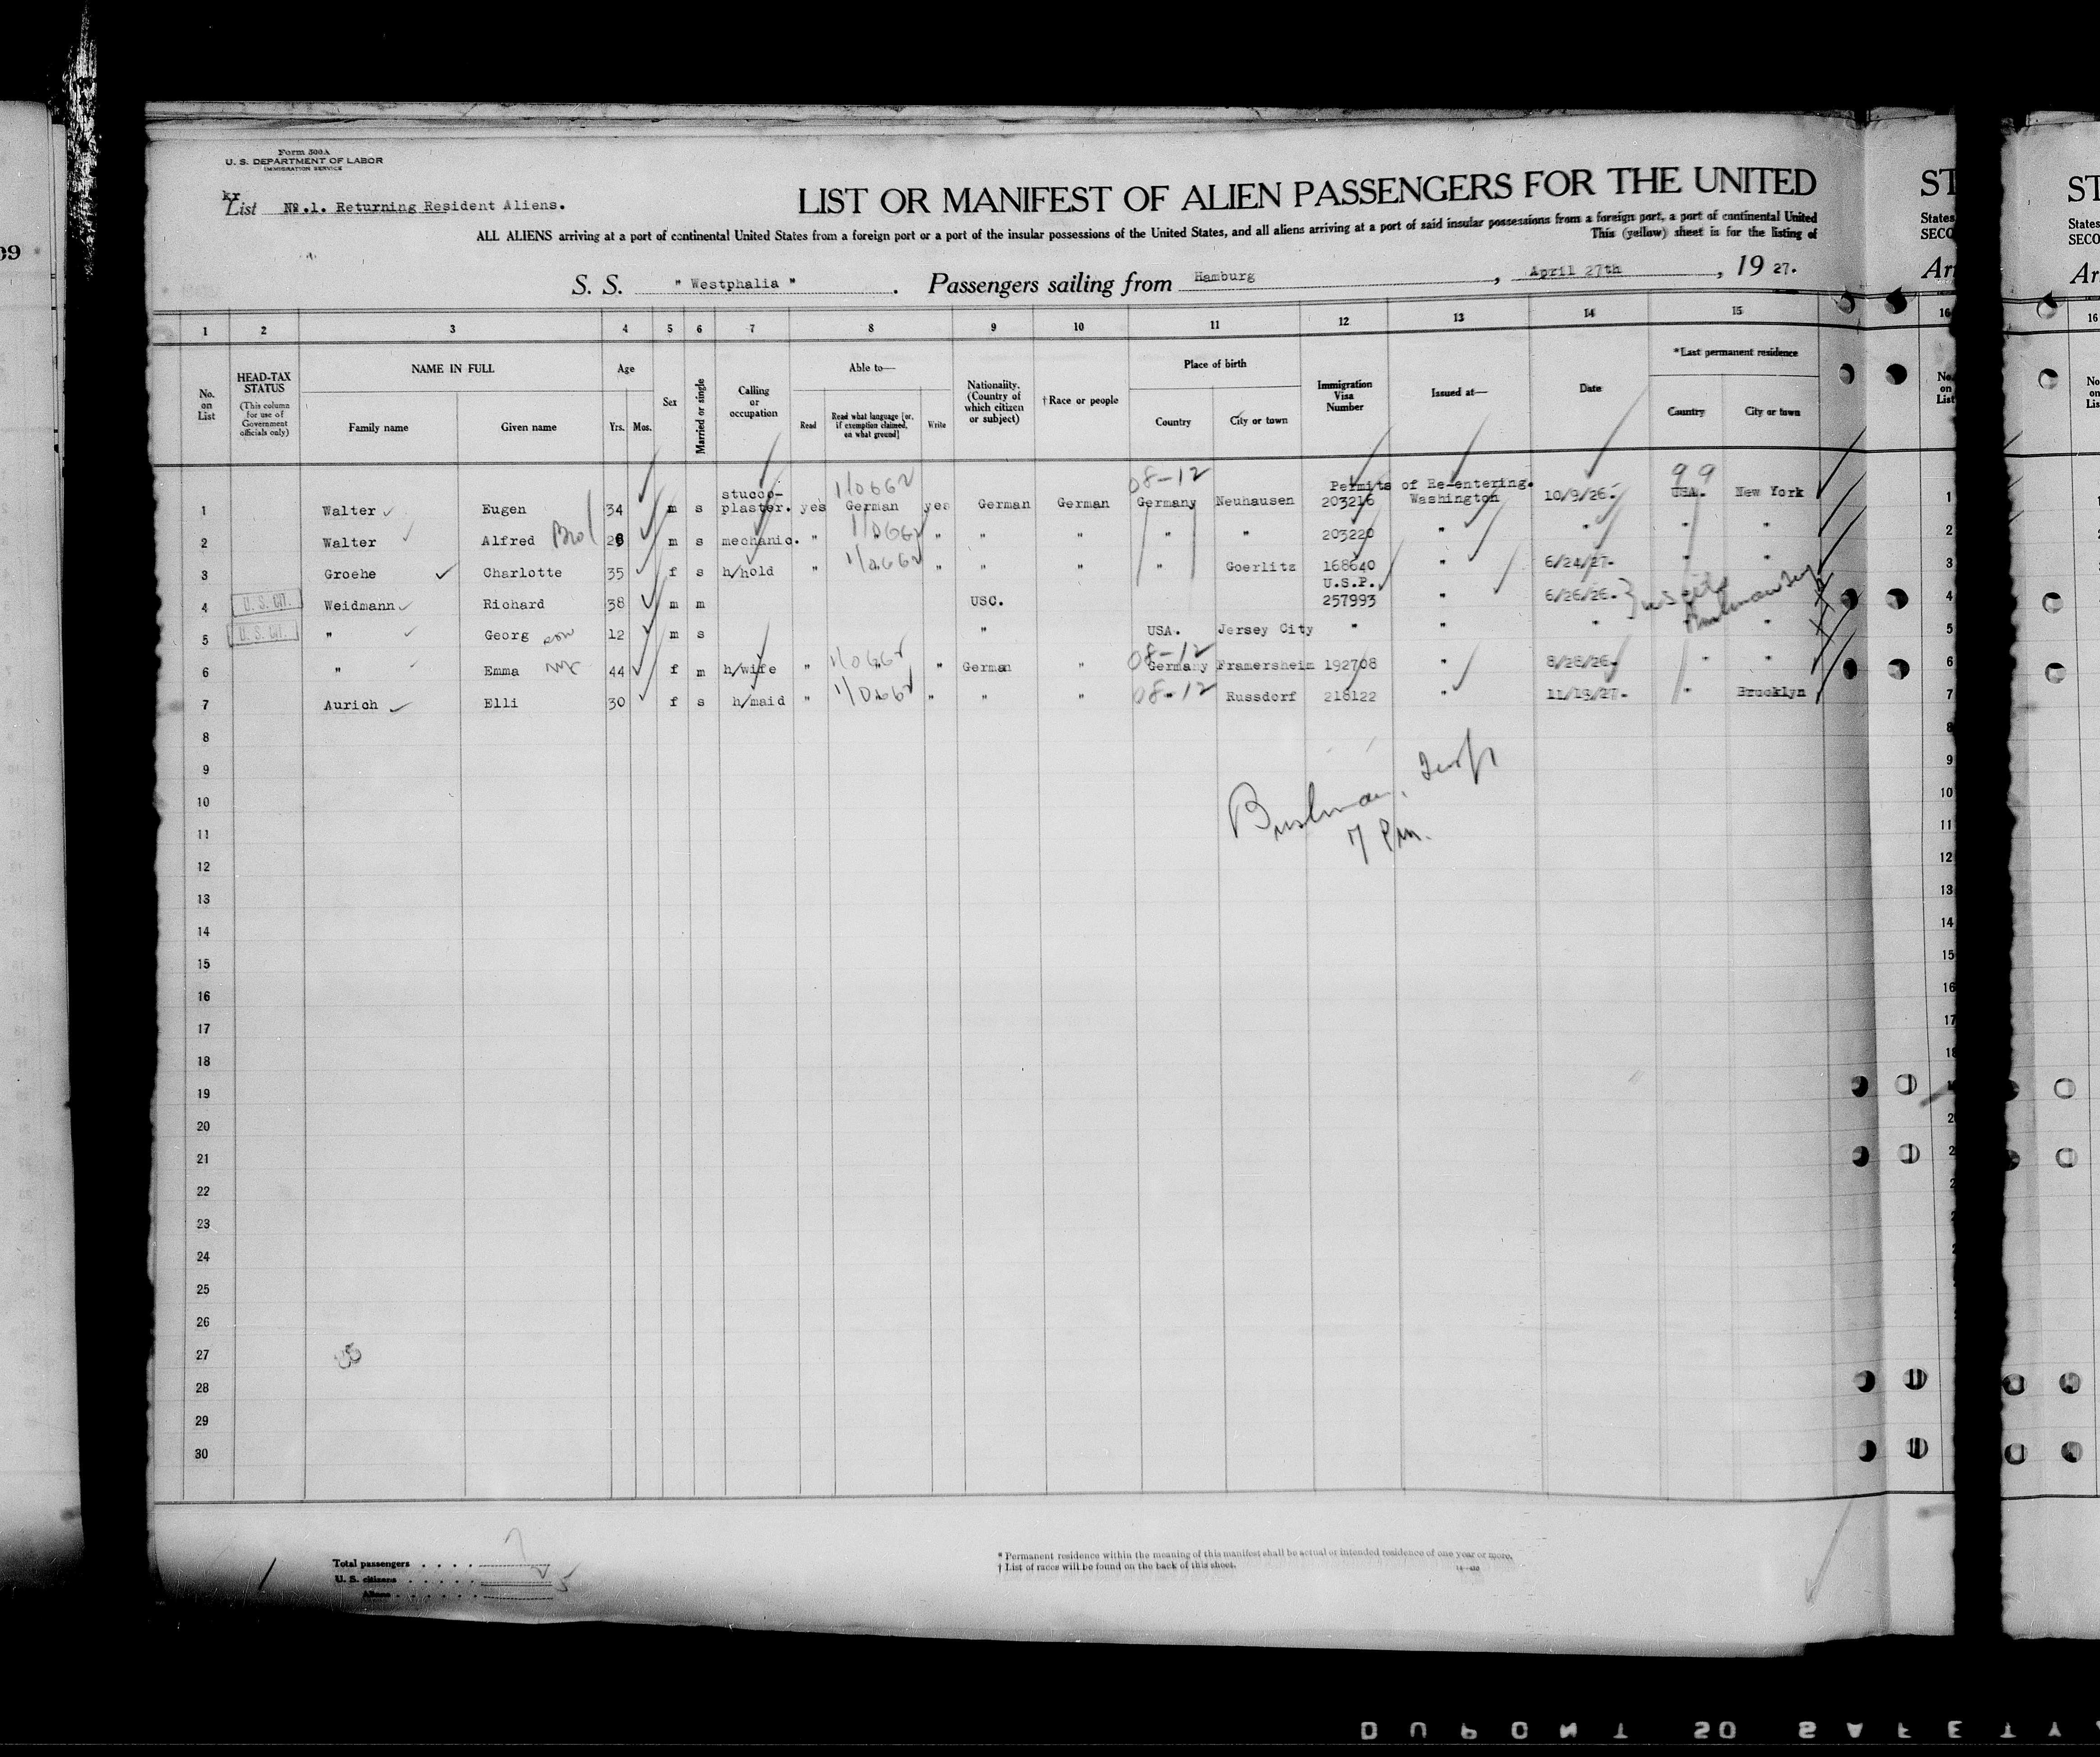 Form 500A
U. S. DEPARTMENT OF LABOR
IMMIGRATION SERVICE
kr
List No.1. Returning Resident Aliens.
LIST OR MANIFEST OF ALIEN PASSENGERS FOR THE UNITED
ALL ALIENS arriving at a port of continental United States from a foreign port or a port of the insular possessions of the United States, and all aliens arriving at a port of said insular possessions from a foreign port, a port of continental United
This (yellow) sheet is for the listing of
S. S. " Westphalia " . Passengers sailing from Hamburg , April 27th , 19 27.
1 2 3 4 5 6 7 8 9 10 11 12 13 14 15
No. on List
HEAD-TAX STATUS (This column for use of Government officials only)
NAME IN FULL
Family name Given name
Age
Yrs. Mos.
Sex
Married or single
Calling or occupation
Able to—
Read Read what language [or, if exemption claimed, on what ground] Write
Nationality. (Country of which citizen or subject)
†Race or people
Place of birth
Country City or town
Immigration Visa Number
Issued at—
Date
*Last permanent residence
Country City or town
08-12 99
Permits of Re-entering.
1 Walter Eugen 34 m s stucco-plaster. yes German yes German German Germany Neuhausen 203216 Washington 10/9/26. USA. New York
2 Walter Alfred Bro 26 m s mechanic. " " " " " " " 203220 " " " "
3 Groehe Charlotte 35 f s h/hold " " " " " Goerlitz 168640 " 6/24/27. " "
U.S.P.
4 U. S. CIT. Weidmann Richard 38 m m USC. 257993 " 6/26/26.
5 U. S. CIT. " Georg son 12 m s " USA. Jersey City " " " "
08-12
6 " Emma 44 f m h/wife " " " German " Germany Framersheim 192708 " 8/28/26. " "
7 Aurich Elli 30 f s h/maid " " " " 08-12 " Russdorf 218122 " 11/13/27. " Brooklyn
8
9
10
11
7 Pm.
12
13
14
15
16
17
18
19
20
21
22
23
24
25
26
27
28
29
30
Total passengers . . . . 7
U. S. citizens . . . . . 2
Aliens . . . . . . 5
* Permanent residence within the meaning of this manifest shall be actual or intended residence of one year or more.
† List of races will be found on the back of this sheet.
ST
States
SECO
16
No. on List
1
2
3
4
5
6
7
8
9
10
11
12
13
14
15
16
17
18
ST
States
SECO
Ar
16
DUPONT SAFETY